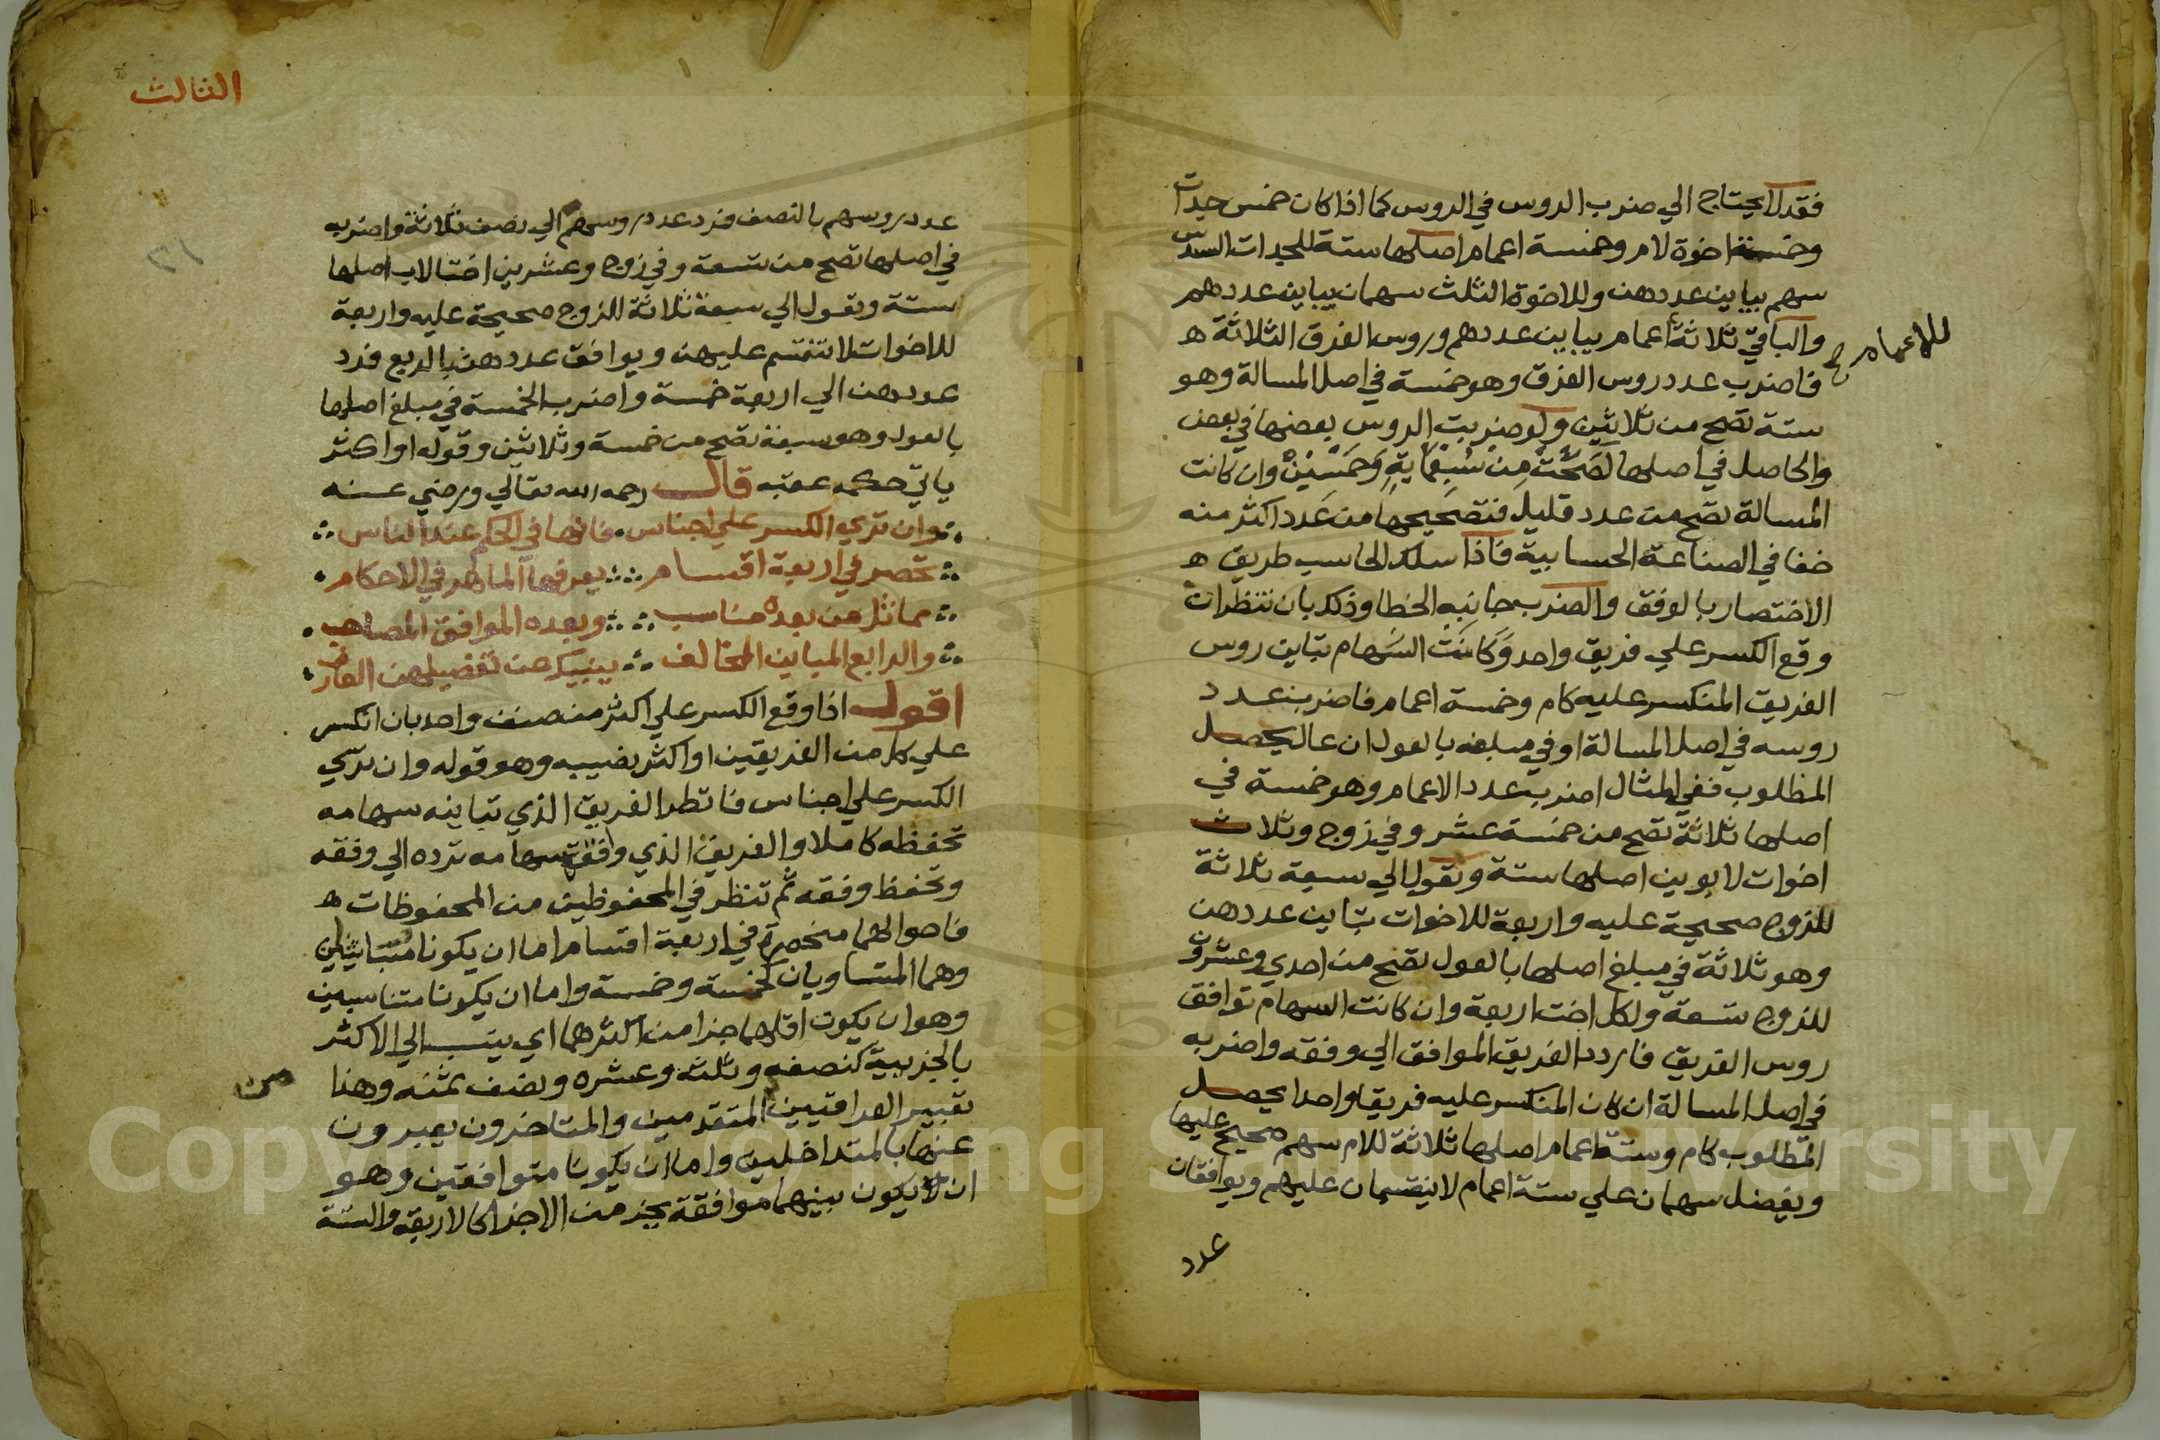 فقد لا يحتاج الي ضرب الروس في الروس كما اذا كان خمس جدات
وخمسة اخوة لام وخمسة اعمام اصلها ستة للجدات السدس
سهم يباين عددهن وللاخوة الثلث سهمان يباين عددهم
والباقي ثلاثة اعمام يباين عددهم وروس الفرق الثلاثة ه
للاعمام صح
فاضرب عدد روس الفرق وهو خمسة في اصل المسالة وهو
ستة تصح من ثلاثين ولو ضربت الروس بعضها في بعض
والحاصل في اصلها لَصَحَّتْ مِنْ سُبعْمِايَةٍ وَخَمْسْيْنْ وان كانت
المسالة تصح من عدد قليل فتصحيحها من عدد اكثر منه
خطا في الصناعة الحسابية فاذا سلك الحاسب طريق ه
الاختصار بالوفق والضرب جانبه الخطا وذلك بان تنظر ان
وقع الكسر علي فريق واحد وَكَانَت السهام تباين روس
الفريق المنكسر عليه كام وخمسة اعمام فاضرب عدد
روسه في اصل المسالة او في مبلغه بالعول ان عال يحصل
المطلوب ففي المثال اضرب عدد الاعمام وهو خمسة في
اصلها ثلاثة تصح من خمسة عشر وفي زوج وثلاث
اخوات لابوين اصلها ستة وتعول الي سبعة ثلاثة
للزوج صحيحة عليه واربعة للاخوات تباين عددهن
وهو ثلاثة في مبلغ اصلها بالعول تصح من احدي وعشرون
للزوج تسعة ولكل اخت اربعة وان كانت السهام توافق
روس الفريق فاردد الفريق الموافق الي وفقه واضربه
في اصل المسالة ان كان المنكسر عليه فريقا واحدا يحصل
المطلوب كام وستة اعمام اصلها ثلاثة للام سهم صحيح عليها
ويفضل سهمان علي ستة اعمام لا ينقسمان عليهم ويوافقان
عدد
الثالث
٢١
عدد روسهم بالنصف فرد عدد روسهم الي نصف ثلاثة واضربه
في اصلها تصح من تسعة وفي زوج وعشرين اختا لاب اصلها
ستة وتعول الي سبعة ثلاثة للزوج صحيحة عليه واربعة
للاخوات لا تنقسم عليهن ويوافق عددهن بالربع فرد
عددهن الي اربعة خمسة واضرب الخمسة في مبلغ اصلها
بالعول وهو سبعة تصح من خمسة وثلاثين وقوله او اكثر
ياتي حكمه عقبه قال رحمه الله تعالي ورضي عنه
وان تري الكسر علي اجناس فانها في الحكم عند الناس
تحصر في اربعة اقسام يعرفها الماهر في الاحكام
مماثل من بعده مناسب وبعده الموافق المصاحب
والرابع المباين المخالف ينبيك عن تفضيلهن العارف
اقول اذا وقع الكسر علي اكثر من صنف واحد بان انكسر
علي كل من الفريقين او اكثر نصيبه وهو قوله وان تري
الكسر علي اجناس فانظر الفريق الذي تباينه سهامه
تحفظه كاملا والفريق الذي وافقته سهامه ترده الي وفقه
وتحفظ وفقه ثم تنظر في المحفوظين من المحفوظات ه
فاحوالهما منحصرة في اربعة اقسام اما ان يكونا متماثلين
وهما المتساويان كخمسة وخمسة واما ان يكونا متناسبين
وهو ان يكون اقلهما جزا من اكثرهما اي ينسب الي الاكثر
بالجزيية كنصفه وثلثه وعشره ونصف ثمنه وهذا
تعبير العراقيين المتقدمين والمتاخرون يعبرون
عنها بالمتداخلين واما ان يكونا متوافقين وهو
ان لا يكون بينهما موافقة بجز من الاجزا كالاربعة والستة